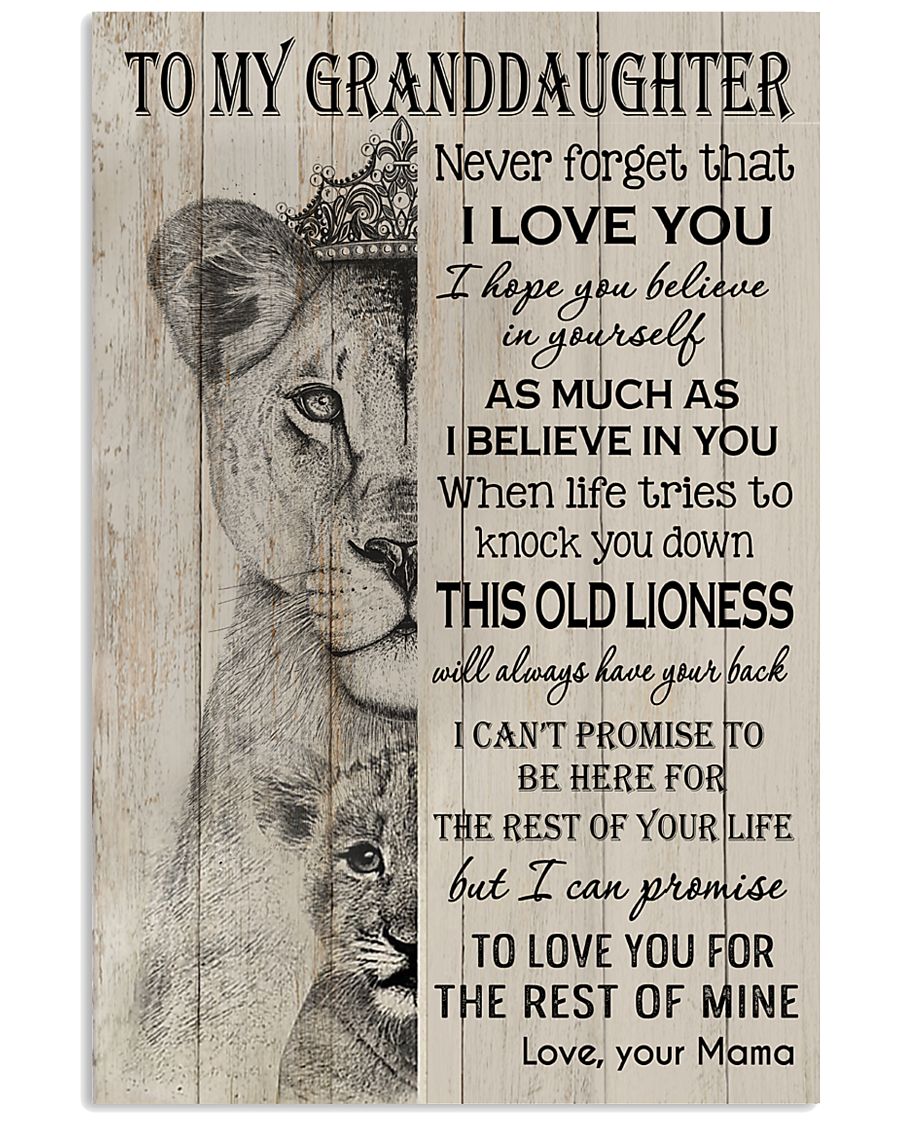 TO MY GRANDDAUGHTER
Never forget that
I LOVE YOU
I hope you believe
in yourself
AS MUCH AS
I BELIEVE IN YOU
When life tries to
knock you down
THIS OLD LIONESS
will always have your back
I CAN'T PROMISE TO
BE HERE FOR
THE REST OF YOUR LIFE
but I can promise
TO LOVE YOU FOR
THE REST OF MINE
Love, your Mama